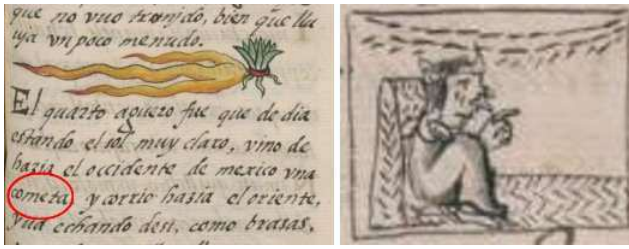 que no vuo tronjdo, bien que llu
uja vn poco menudo.
El quarto aguero fue que de dia
estando el sol muy claro, vino de
hazia el occidente de mexico vna
cometa y corrio hazia el oriente,
yua echando desi, como brasas,